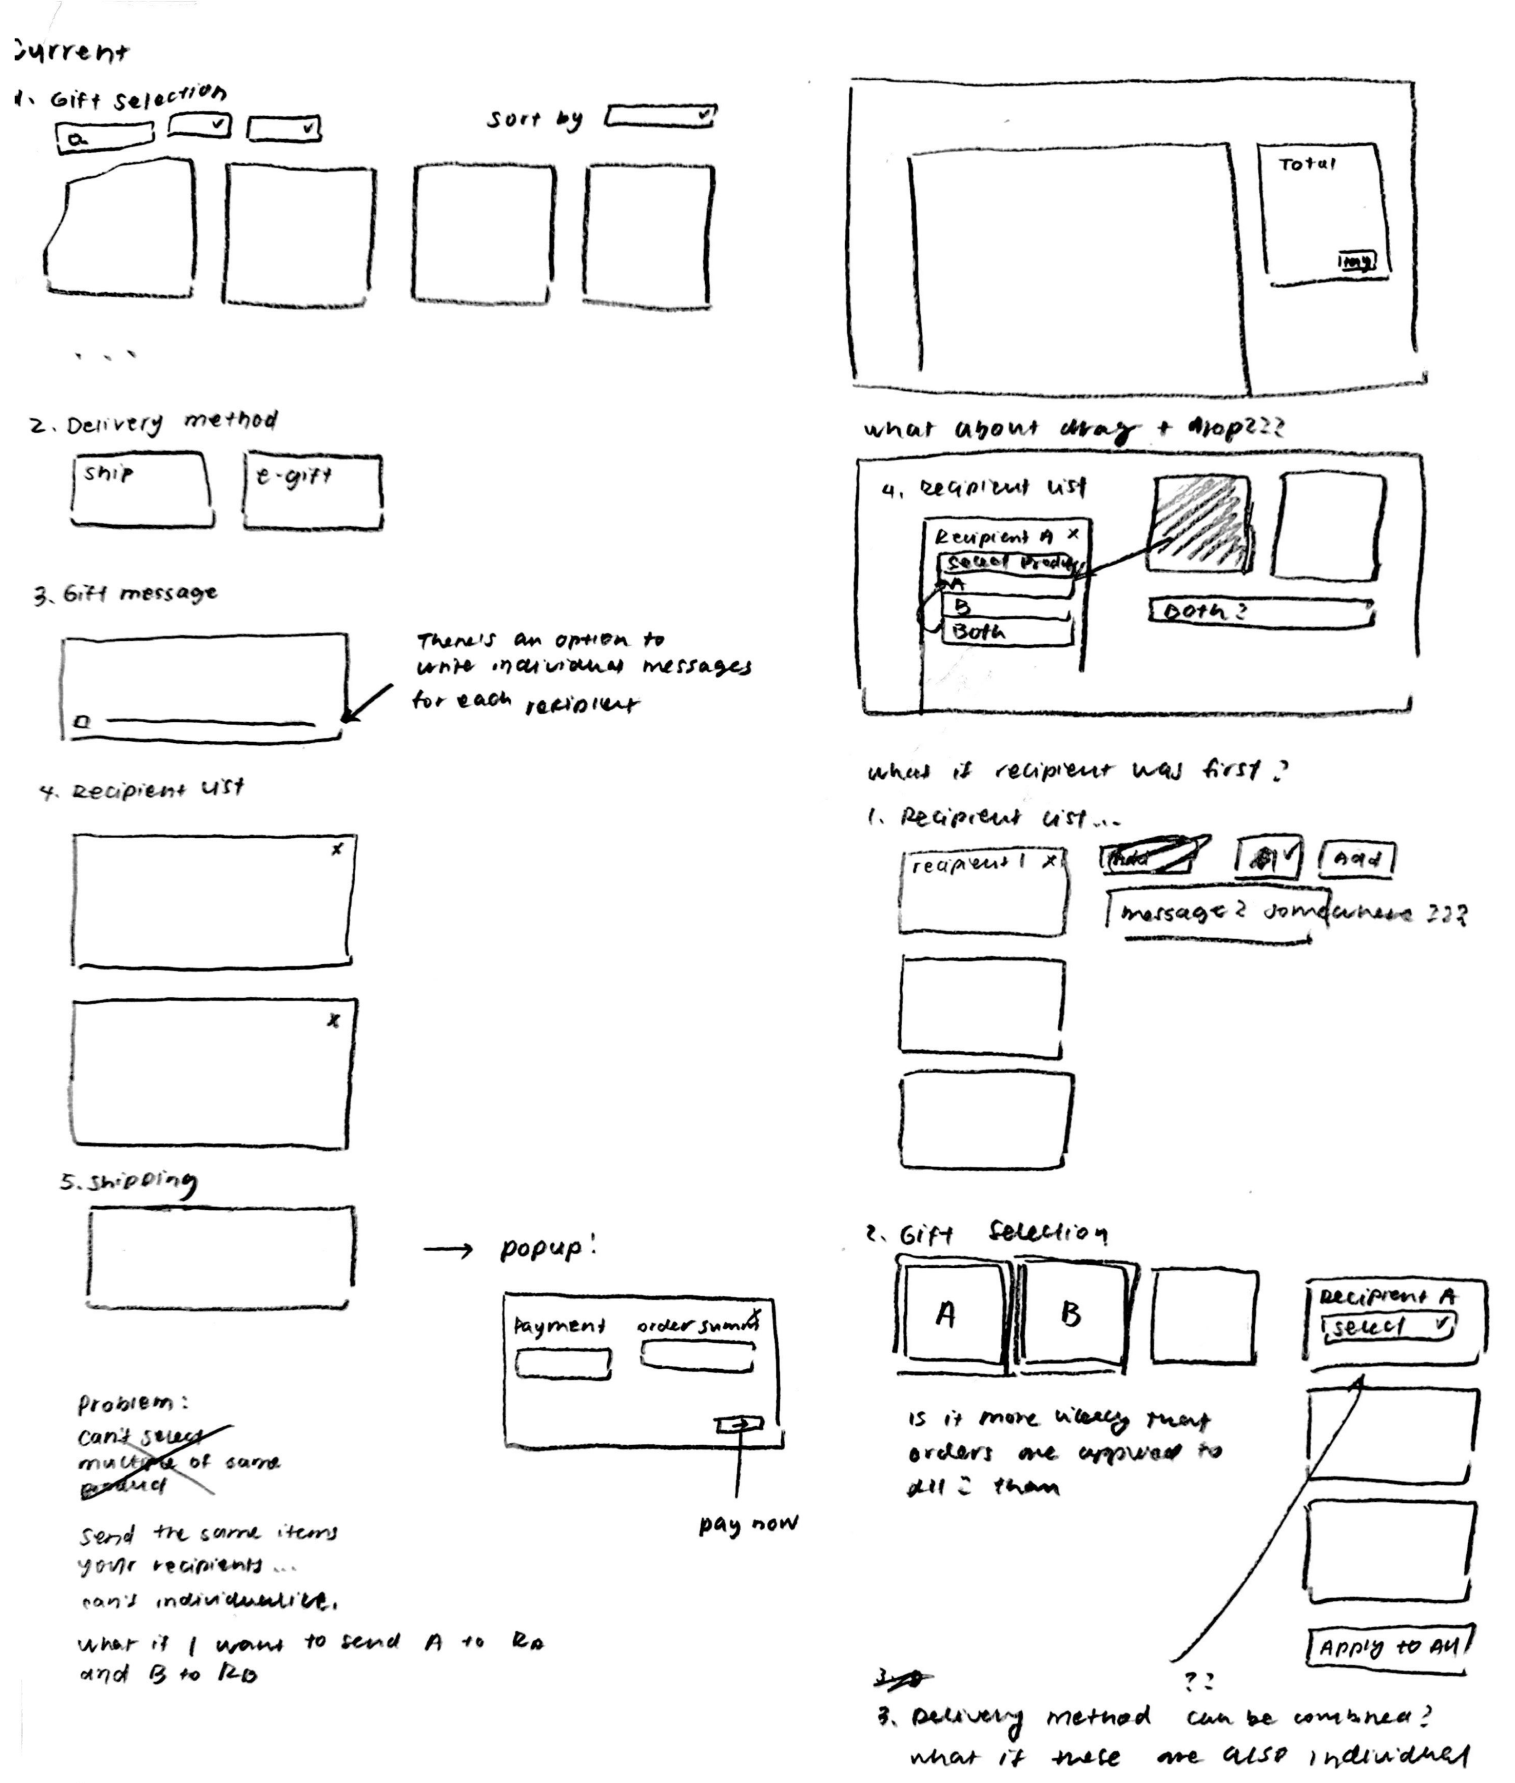 Current
1. Gift selection
sort by
...
2. Delivery method
ship
e-gift
3. Gift message
There's an option to
write individual messages
for each recipient
4. Recipient list
x
x
5. Shipping
→ popup!
Payment
order summ
x
pay now
Problem:
can't select
multiple of same
product
send the same items
your recipients...
can't individualize.
what if I want to send A to RA
and B to RB
Total
pay
what about drag + drop???
4. Recipient list
Recipient A x
Select Product
A
B
Both
Both?
what if recipient was first?
1. Recipient list...
recipient 1 x
Add
message? somewhere ???
2. Gift selection
A
B
Recipient A
select
is it more likely that
orders are applied to
all? than
Apply to All
??
3. Delivery method can be combined?
what if these are also individual